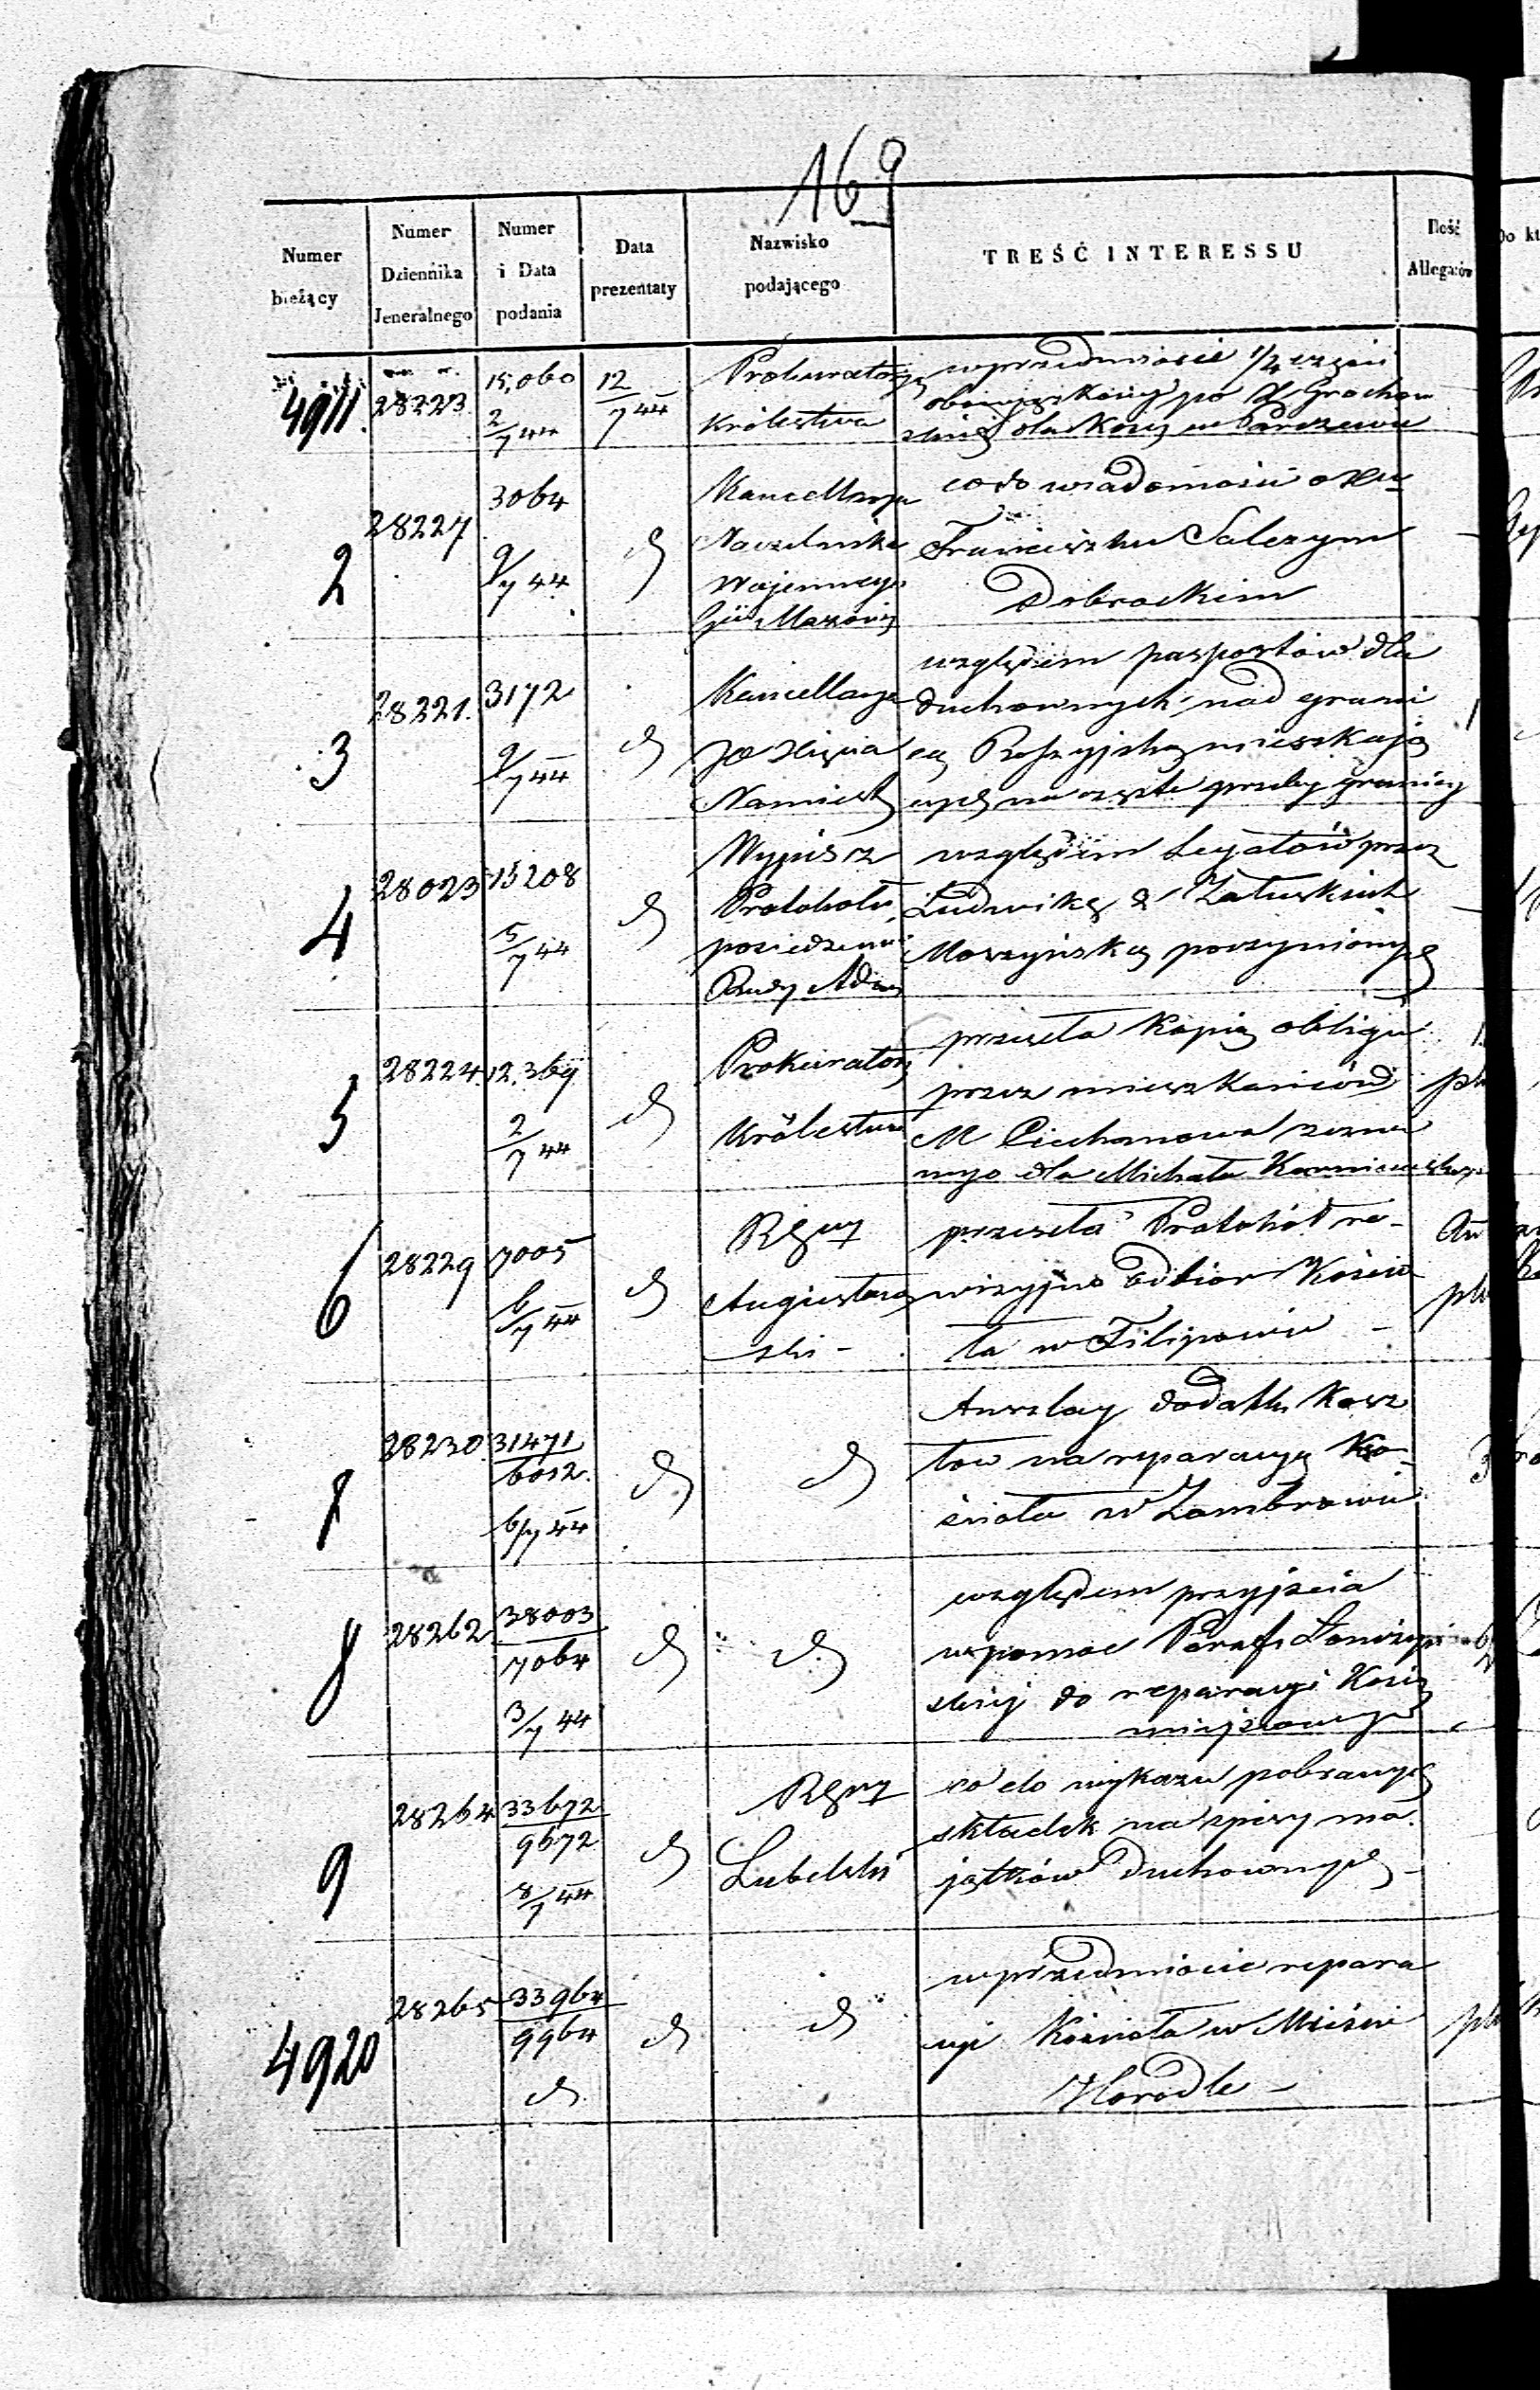 169
Numer bieżący
Numer Dziennika Jeneralnego
Numer i Data podania
Data prezentaty
Nazwisko podającego
TREŚĆ INTERESSU
Ilość Allegatów
4911. 28223 15,060 2/7 44 12/7 44
Prokuratorya
Królestwa
w przedmiocie 1/4 części
po X Grochow
skim dla Kość w Parczewie
2 28227 3064 9/7 44 d
Kancellarya
Naczelnika
Wojennego
Gu Mazowi
co do wiadomości o Xu
Franciszku Salezym
Dobrockim
3 28221. 3172 9/7 44 d
Kancellarya
JO Xięcia
Namiest
względem pasportów dla
duchownych nad grani
cą Rossyjską mieszkają
cych na częste przeby granicy
4 28023 15208 5/7 44 d
Wypis z
Protokołu
posiedzenia
Rady Adm
względem Legatów przez
Ludwikę z Załuskich
Moszyńską poczynionych
5 28224 12,369 2/7 44 d
Prokurator
Królestwa
przesyła Kopią obligu
przez mieszkańców
M Ciechanowa zezna
nego dla Michała
6 28229 7005 6/7 44 d
RGny
Augustow
ski -
przesyła Protokół re-
wizyjno Kościo
ła w Filipowie -
7 28230 31471/6012. 6/7 44 d d
Anszlag dodatk kosz
tów na reparacyę Ko-
ścioła w Zambrowie
8 28262 38003/7064 3/7 44 d d
względem przyjścia
w pomoc Paraf
skiej do reparacyi Kość
miejscowego
9 28264 33672/9672 8/7 44 d
RGny
Lubelski
co do wykazu pobranych
składek na spisy ma
jątków duchownych -
4920 28265 33964/9964 d d d
w przedmiocie repara
cyi Kościoła w
Horodle -